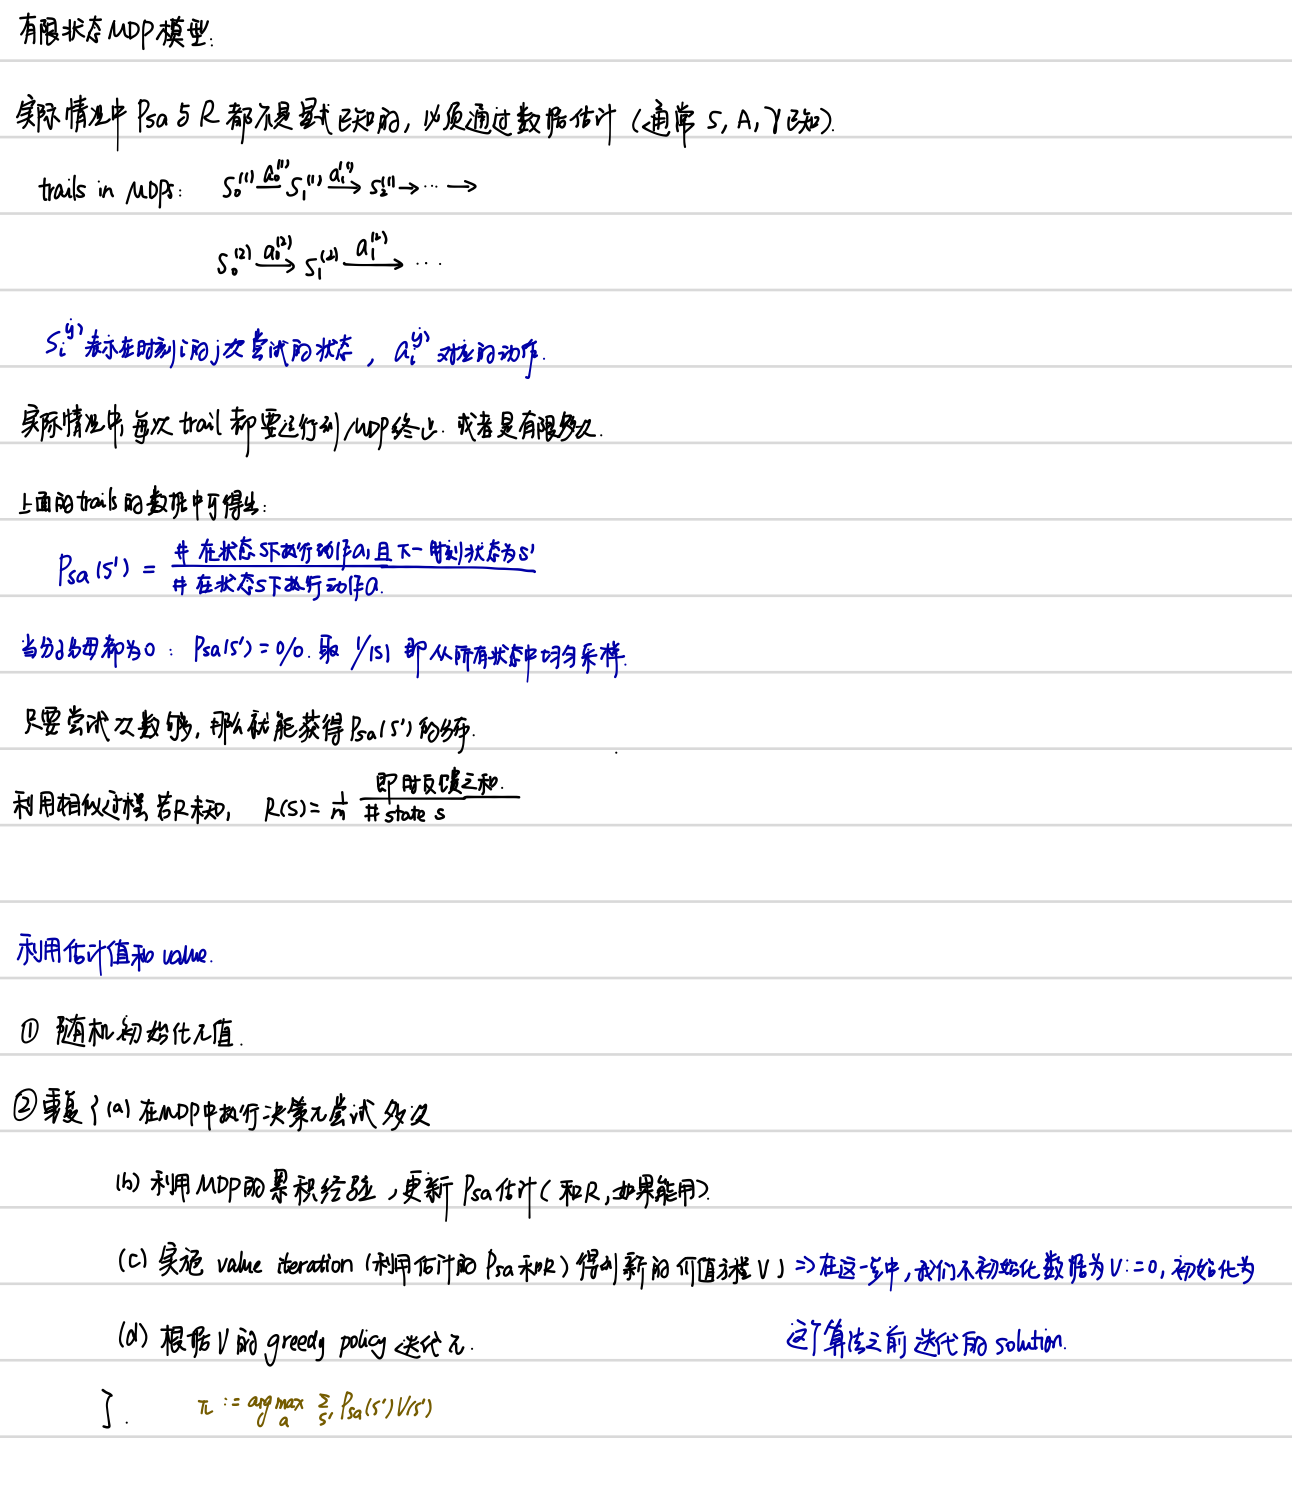 有限状态MDP模型:
实际情况中 Psa 与 R 都不是显式已知的, 必须通过数据估计 (通常 S, A, γ已知).
trails in MDPs: S₀⁽¹⁾ —a₀⁽¹⁾→ S₁⁽¹⁾ —a₁⁽¹⁾→ S₂⁽¹⁾ → ··· →
S₀⁽²⁾ —a₀⁽²⁾→ S₁⁽²⁾ —a₁⁽²⁾→ ···
Sᵢ⁽ʲ⁾ 表示在时刻i的j次尝试的状态, aᵢ⁽ʲ⁾ 对应的动作.
实际情况中, 每次 trail 都要运行到 MDP终止. 或者是有限多次.
上面的trails的数据中可得出:
Psa(s') = # 在状态S下执行动作a, 且下一时刻状态为s'
# 在状态S下执行动作a.
当分子分母都为0 : Psa(s') = 0/0. 取 1/|S| 即从所有状态中均匀采样.
只要尝试次数够, 那么就能获得 Psa(s') 的估计.
利用相似过程, 若R未知, R(S) = 1/m 即时反馈之和.
# state s
利用估计值和 value.
① 随机初始化π值.
② 重复 { (a) 在MDP中执行决策π尝试多次
(b) 利用MDP的累积经验, 更新 Psa估计 (和R, 如果能用).
(c) 实施 value iteration (利用估计的 Psa 和R) 得到新的价值方程 V ) ⇒ 在这一步中, 我们不初始化数据为 V:=0, 初始化为
这个算法之前迭代的 solution.
(d) 根据 V 的 greedy policy 迭代π.
}. π := arg max_a Σ_s' Psa(s')V(s')